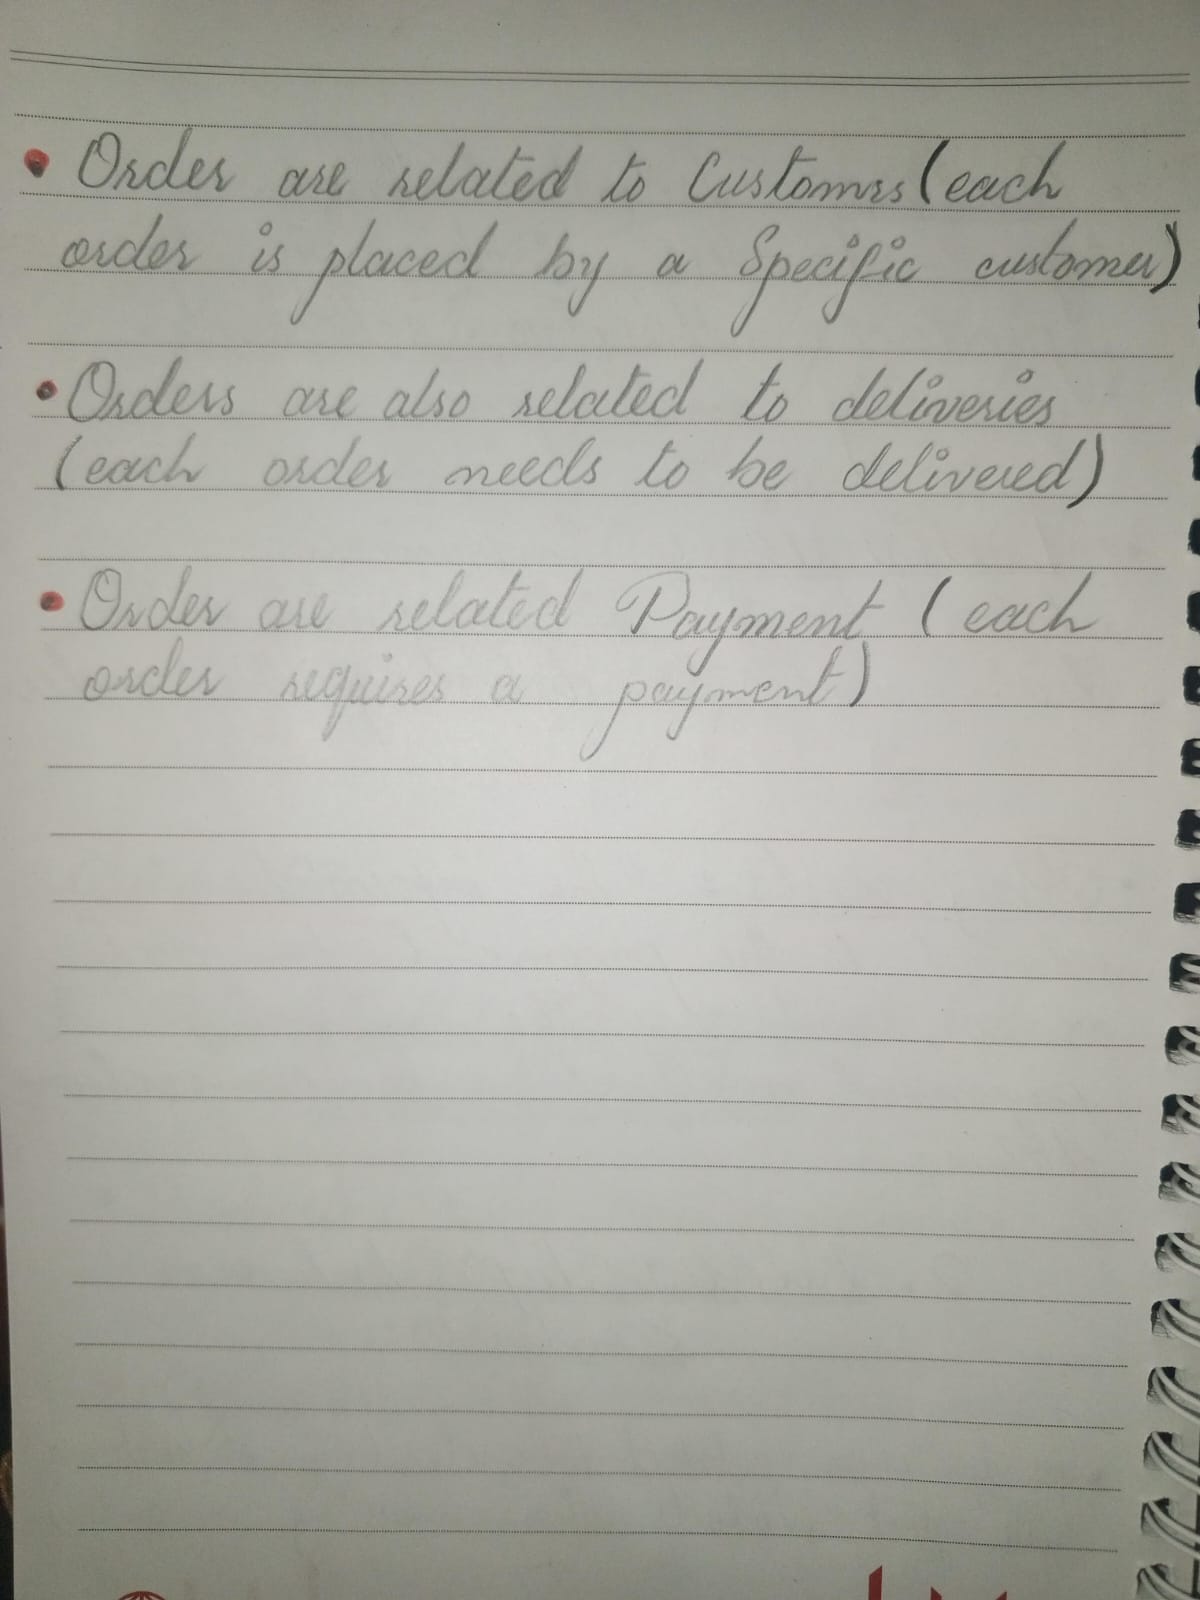 • Order are related to Customrs (each
order is placed by a Specific customer)
• Orders are also related to deliveries
(each order needs to be delivered)
• Order are related Payment (each
order requires a payment)